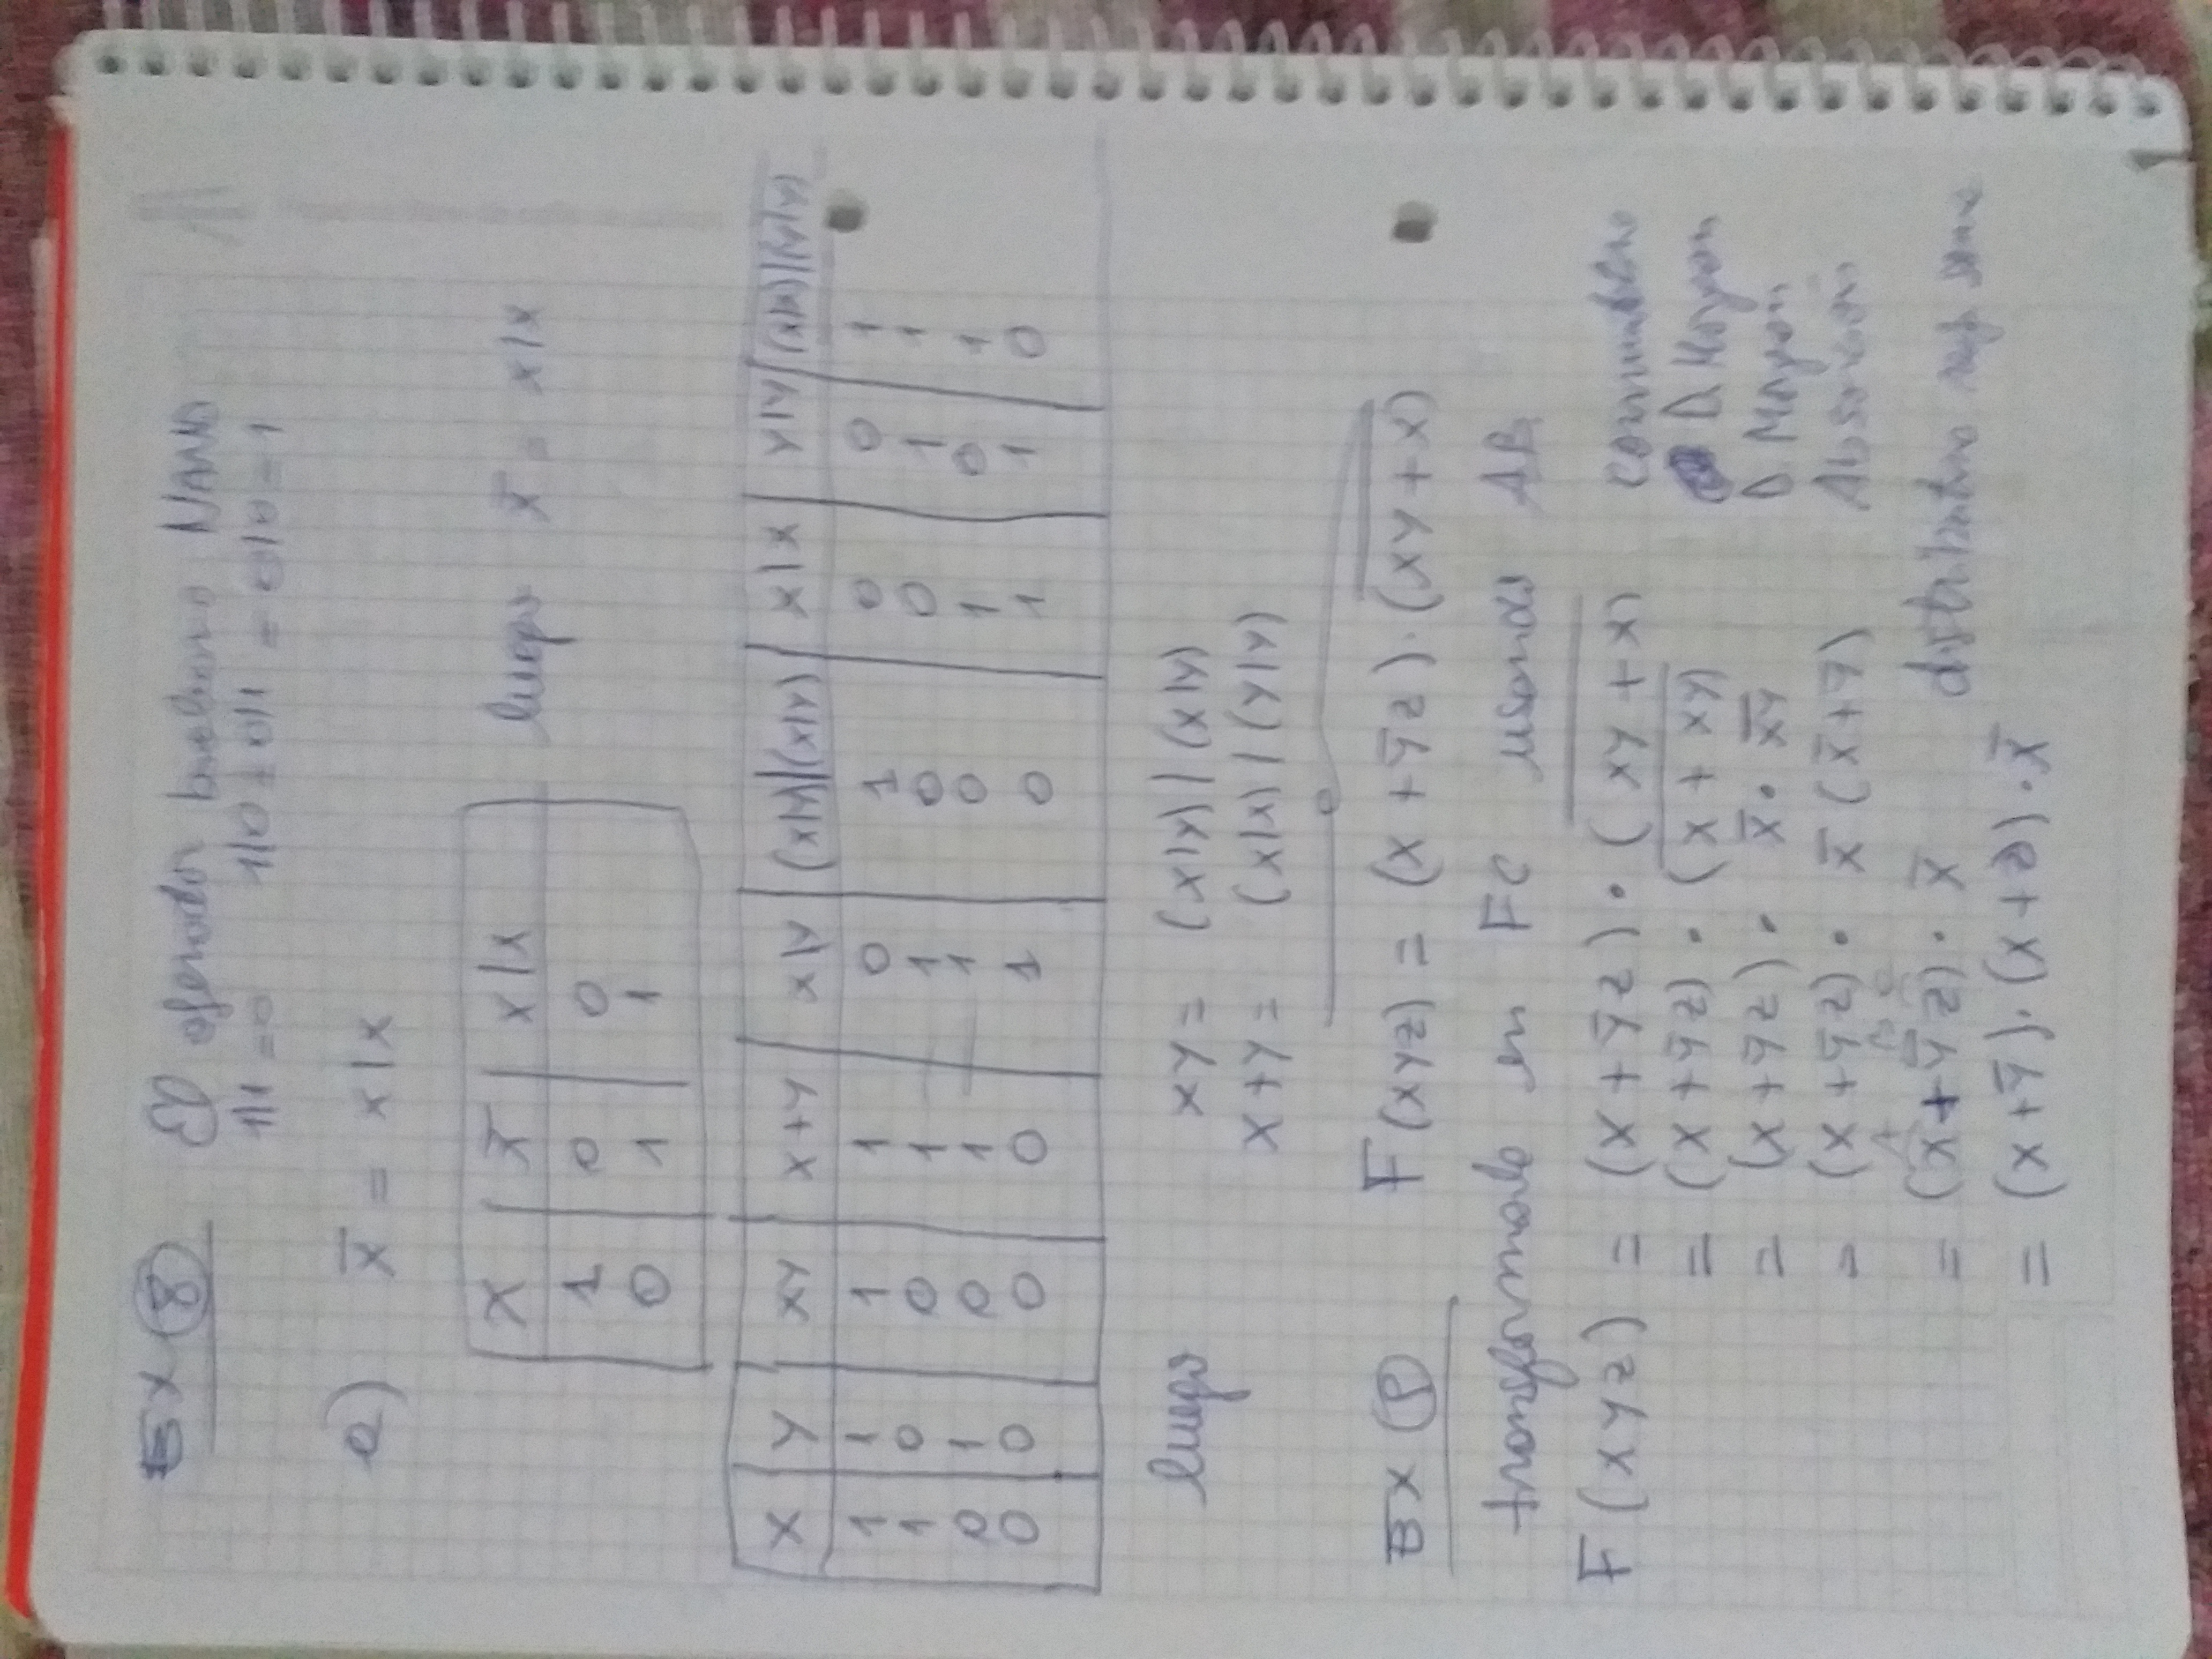 EX ⑧ El operador booleano NAND
1|1 = 0 1|0 = 0|1 = 0|0 = 1
a) x̅ = x|x
X x̅ x|x
1 0 0
0 1 1
luego x̅ = x|x
X Y XY X+Y X|Y (X|Y)|(X|Y) X|X Y|Y (X|X)|(Y|Y)
1 1 1 1 0 1 0 0 1
1 0 0 1 1 0 0 1 1
0 1 0 1 1 0 1 0 1
0 0 0 0 1 0 1 1 0
luego XY = (X|Y)|(X|Y)
X+Y = (X|X)|(Y|Y)
EX ⑨ F(XYZ) = (X + Y̅Z)·(X̅Y̅ ̅+̅ ̅X̅)
transformala en FC usando AB
F(XYZ) = (X + Y̅Z)·(X̅Y̅ ̅+̅ ̅X̅) conmutativa
= (X + Y̅Z)·(X̅ ̅+̅ ̅X̅Y̅) D. Morgan
= (X + Y̅Z)· X̅ · X̅Y̅ D. Morgan
= (X + Y̅Z)· X̅ (X̅ + Y̅) Absorción
A B C
= (X + Y̅Z)· X̅ distributiva resp suma
= (X + Y̅)·(X + Z)·X̅